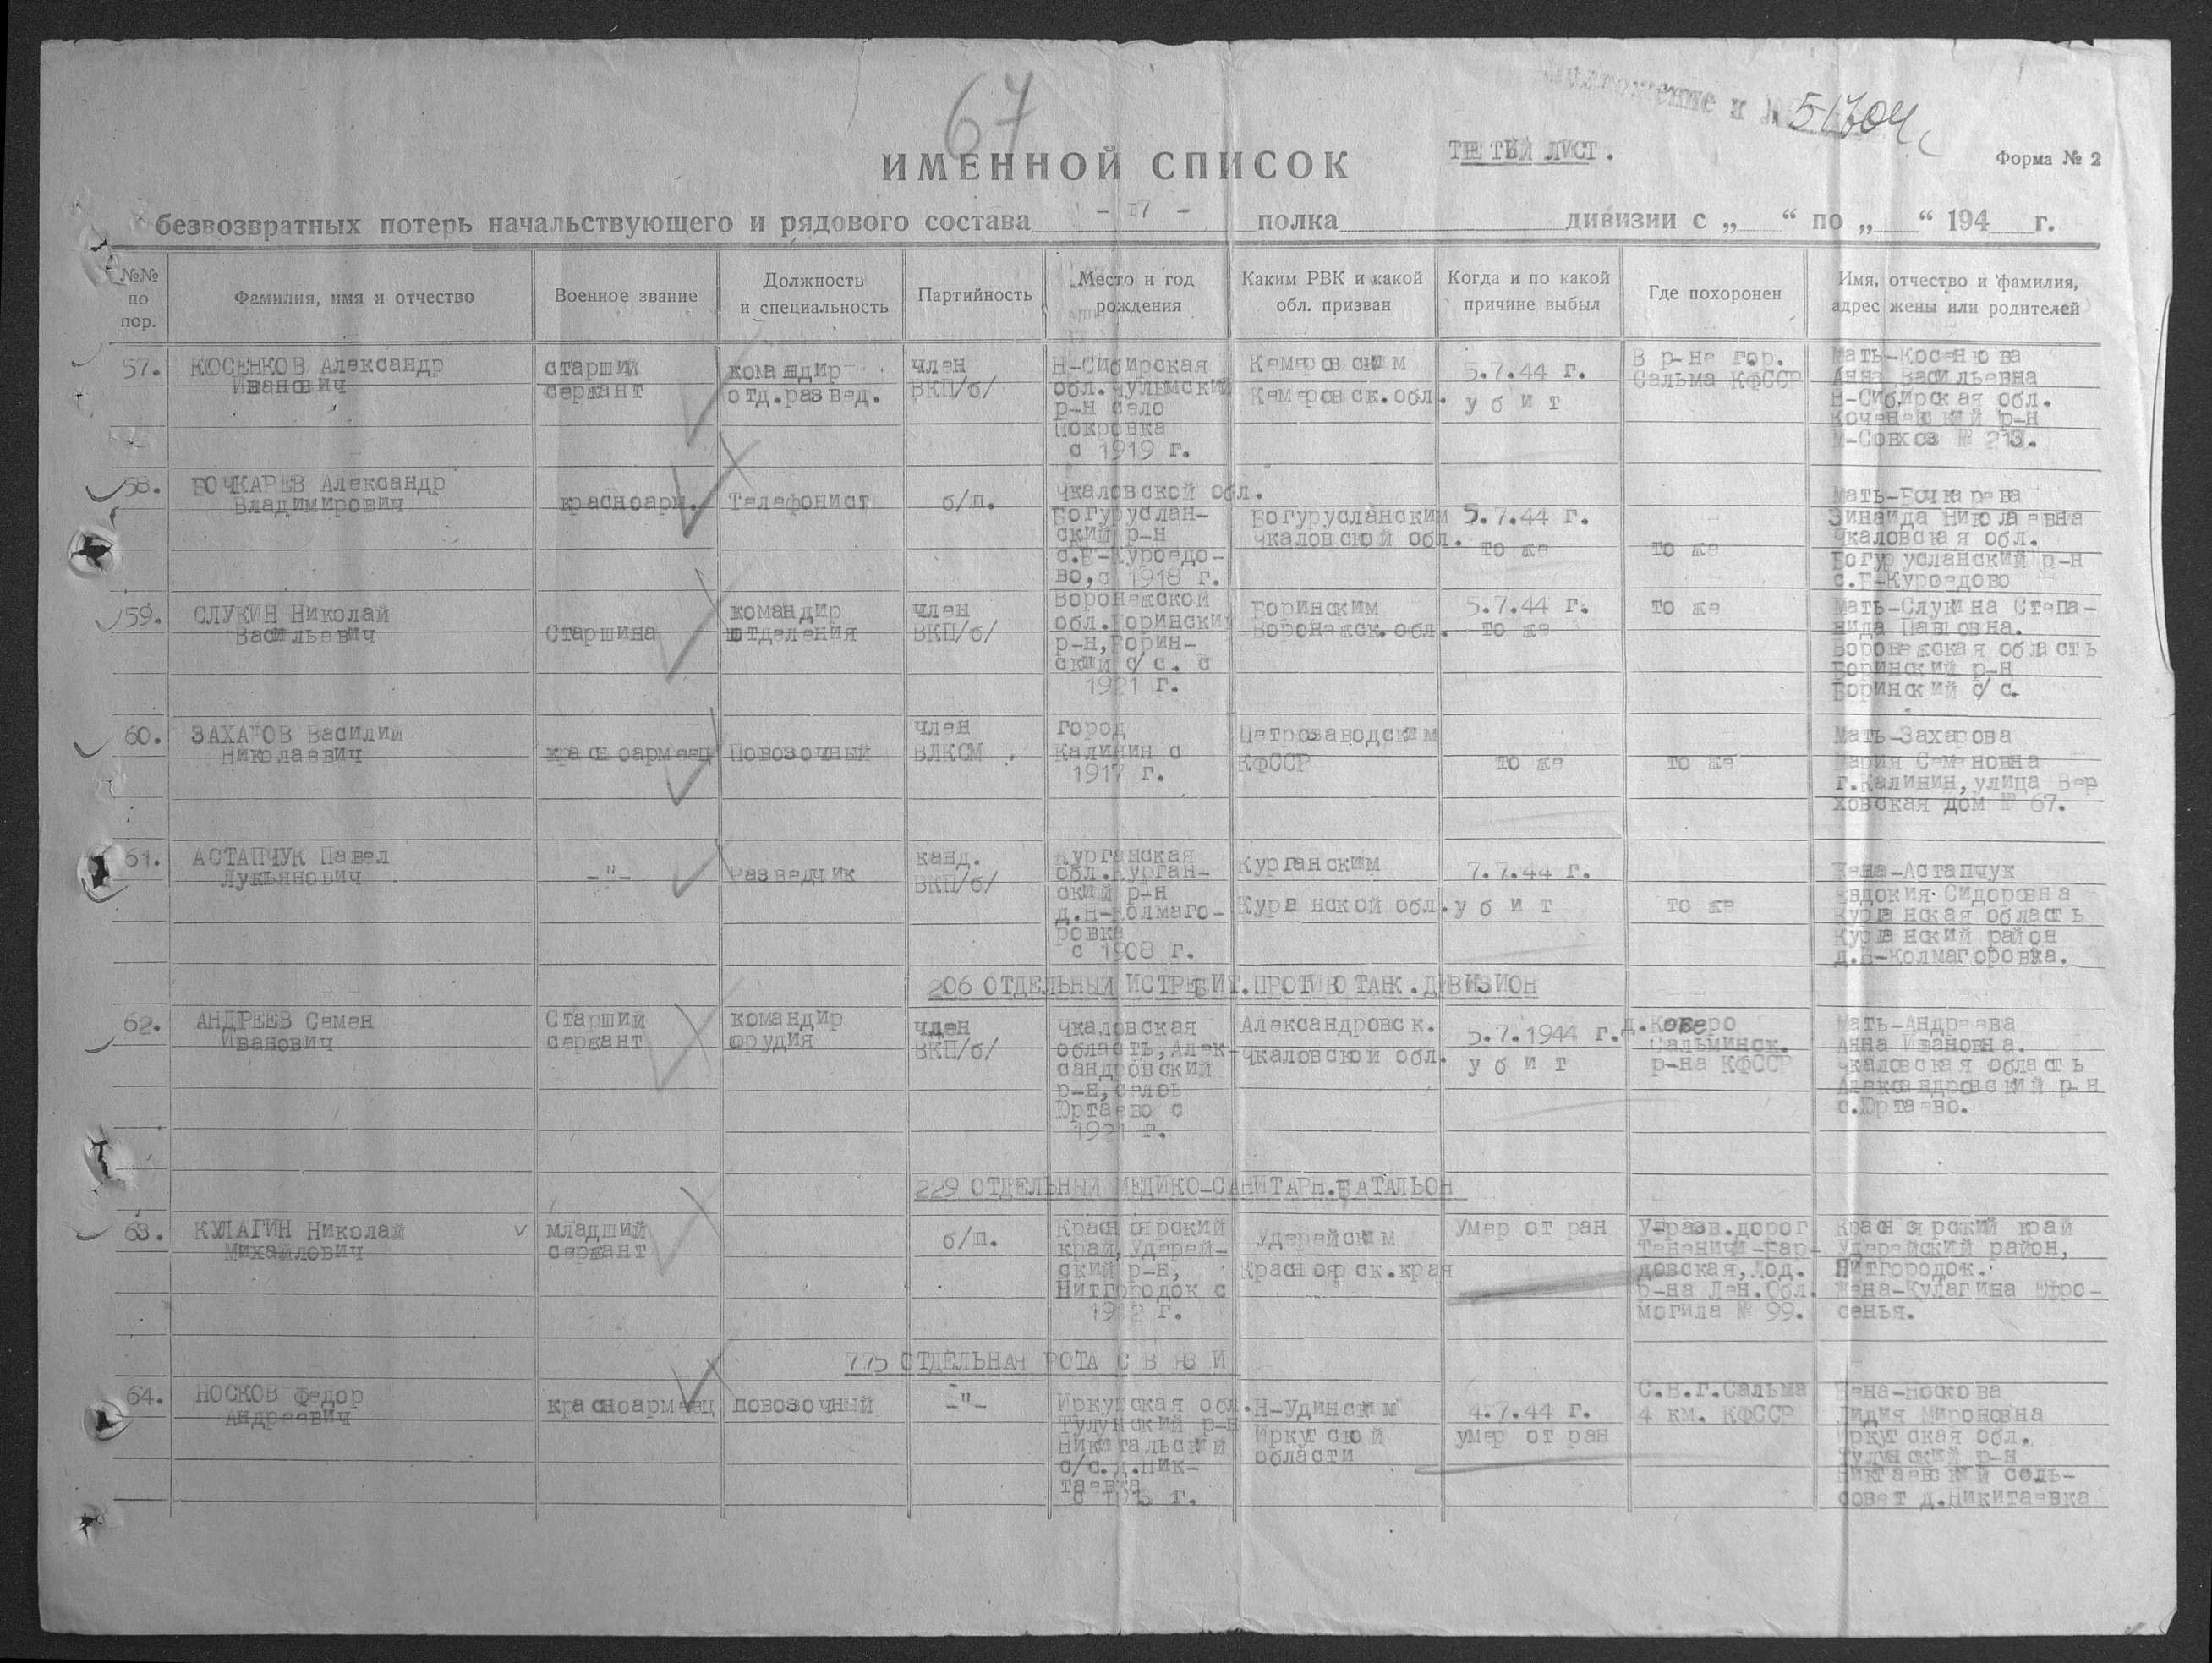 67
51704
ТРЕТЬЙ ЛИСТ.
Форма № 2
ИМЕННОЙ СПИСОК
безвозвратных потерь начальствующего и рядового состава - 17 - полка дивизии с „ “ по „ “ 194 г.
№№ по пор.
Фамилия, имя и отчество
Военное звание
Должность и специальность
Партийность
Место и год рождения
Каким РВК и какой обл. призван
Когда и по какой причине выбыл
Где похоронен
Имя, отчество и фамилия, адрес жены или родителей
57.
КОСЕНКОВ Александр
Иванович
старший
сержант
командир
отд.развед.
член
ВКП/б/
Н-Сибирская
обл.Чулымский
р-н село
Покровка
с 1919 г.
Кемеровским
Кемеровск.обл.
5.7.44 г.
убит
В р-не гор.
Сальма КФССР
Мать-Косенкова
Анна Васильевна
Н-Сибирская обл.
Коченевский р-н
М-Совхоз № 213.
58.
БОЧКАРЕВ Александр
Владимирович
красноарм.
Телефонист
б/п.
Чкаловской обл.
Богуруслан-
ский р-н
с.Б-Куроедо-
во,с 1918 г.
Богурусланским
Чкаловской обл.
5.7.44 г.
то же
то же
Мать-Бочкарева
Зинаида Николаевна
Чкаловская обл.
Богурусланский р-н
с.Б-Куроедово
59.
СЛУКИН Николай
Васильевич
Старшина
командир
отделения
член
ВКП/б/
Воронежской
обл.Боринский
р-н,Борин-
ский с/с. с
1921 г.
Боринским
Воронежск.обл.
5.7.44 г.
то же
то же
Мать-Слукина Степа-
нида Павловна.
Воронежская область
Боринский р-н
Боринский с/с.
60.
ЗАХАРОВ Василий
Николаевич
красноармеец
Повозочный
член
ВЛКСМ
город
Калинин с
1917 г.
Петрозаводским
КФССР
то же
то же
Мать-Захарова
Мария Семеновна
г.Калинин,улица Вер
ховская дом № 67.
61.
АСТАПЧУК Павел
Лукьянович
-"-
Разведчик
канд.
ВКП/б/
Курганская
обл.Курган-
ский р-н
д.Н-Колмаго-
ровка
с 1908 г.
Курганским
Курганской обл.
7.7.44 г.
убит
то же
Жена-Астапчук
Евдокия Сидоровна
Курганская область
Курганский район
д.Н-Колмагоровка.
206 ОТДЕЛЬНЫЙ ИСТРЕБИТ.ПРОТИВОТАНК.ДИВИЗИОН
62.
АНДРЕЕВ Семен
Иванович
Старший
сержант
командир
орудия
член
ВКП/б/
Чкаловская
область,Алек-
сандровский
р-н,село
Юртаево с
1921 г.
Александровск.
Чкаловской обл.
5.7.1944 г.
убит
д.Коверо
Сальминск.
р-на КФССР
Мать-Андреева
Анна Ивановна.
Чкаловская область
Александровский р-н
с.Юртаево.
229 ОТДЕЛЬНЫЙ МЕДИКО-САНИТАРН.БАТАЛЬОН
63.
КУЛАГИН Николай
Михайлович
младший
сержант
б/п.
Красноярский
край,Удерей-
ский р-н,
Нитгородок с
1912 г.
Удерейским
Красноярск.края
Умер от ран
У-разв.дорог
Тененичи-Бар-
довская,Лод.
р-на Лен.Обл.
могила № 99.
Красноярский край
Удерейский район,
Нитгородок.
Жена-Кулагина Ефро-
сенья.
775 ОТДЕЛЬНАЯ РОТА СВЯЗИ
64.
НОСКОВ Федор
Андреевич
красноармеец
повозочный
-"-
Иркутская обл.
Тулунский р-н
Никитальский
с/с.д.Ник-
таевка
Н-Удинским
Иркутской
области
4.7.44 г.
умер от ран
С.В.г.Сальма
4 км. КФССР
Жена-Носкова
Лидия Мироновна
Иркутская обл.
Тулунский р-н
Никтаевский соль-
совет д.Никитаевка